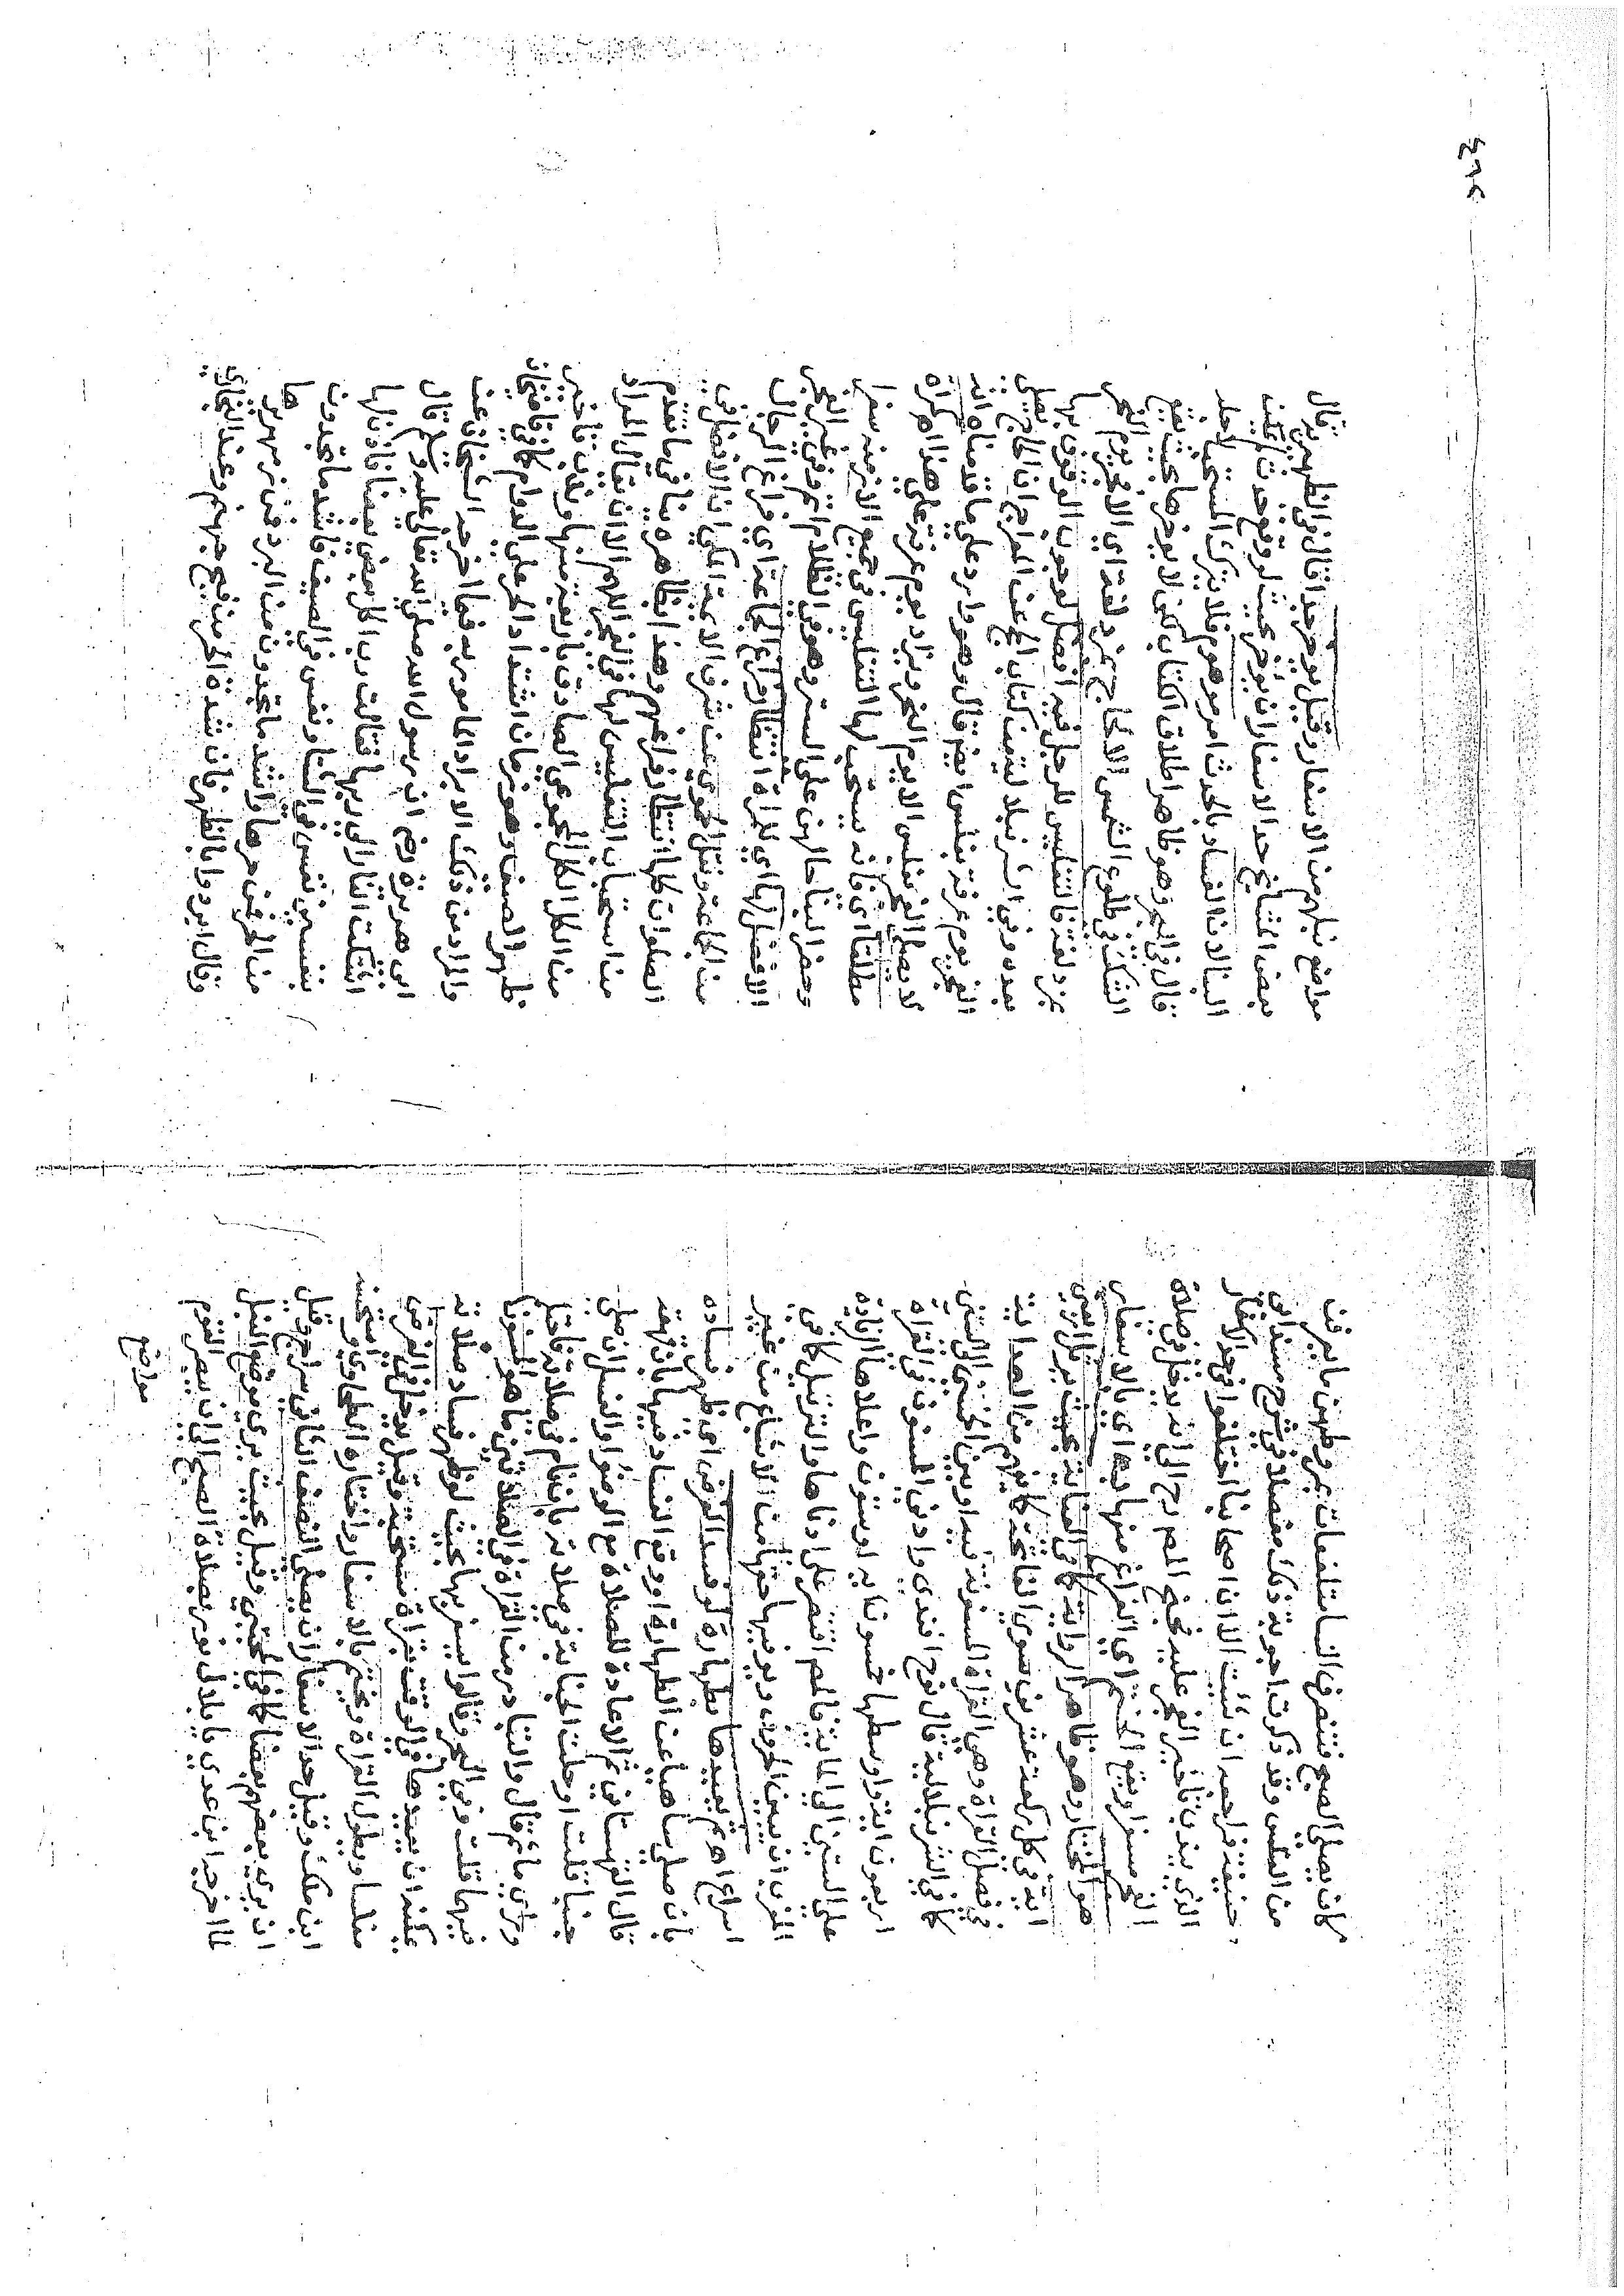 كان يصلي الصبح فتنصرف النسا متلفعات بمروطهن ما يعرفن
من الغلس وقد ذكرت اجوبة ذلك مفصلا في شرح مسند ابي
حنيفة فراجعه ان شئت الا ان اصحابنا اختلفوا في حد الاسفار
الذي يندب تاخير الفجر عليه فجنح المص رح الي انه يدخل في صلاة
الفجر مسفرا ويقع الختم اي الفراغ منها به اي بالاسفار
هو المختار وهو ظاهر الرواية كما في العناية بحيث يرتل اربعين
اية في كل ركعة عشرين سوي الفاتحة كما يفهم من الهداية
في فصل القراة وهي القراة المسنونة وبين الخمسين الي الستين
كما في الشرنبلالية قال نوح افندي وادني المسنون في القراة
اربعون اية واوسطها خمسون اية او ستون واعلاها الزيادة
علي الستين الي الماية اقتصر علي ادناها والترتيل كما في
المغرب ان يبين الحروف ويوفيها حقها من الاشباع من غير
اسراع اهـ ثم يعيدها بطهارة لو فسد الفرض اي ظهر فساده
بان صلي ساهيا عن الطهارة او وقع الفساد فيها بان قهقه
قال القهستاني ثم الاعادة للصلاة مع الوضوء او الغسل ان صلي
جنبا قلت او دخلت الجنابة في صلاته بان نام في صلاته فاحتلم
ثم قال والتبادر من القراة في الصلاتين ما هو المسنون
فيهما قلت وفي البحر وقالوا يسفر بها بحيث لو ظهر فساد صلاته
يمكنه ان يعيدها في الوقت بقراة مستحبة وقيل يدخل في الفرض
مغلسا ويطول القراة ويختم بالاسفار واختاره الطحاوي واستحسنه
ابن ملك وقيل حد الاسفار ان يصلي النصف الثاني سراج وقيل
ان يري بعضهم بعضا كما في المجتبي وقيل بحيث يري موضع النبل
لما اخرجه ابن عدي يا بلال نور بصلاة الصبح الي ان يبصر القوم
مواضع
مواضع نبلهم من الاسفار وقيل يوخر جدا قال في الظهيرية قال
بعض المشايخ حد الاسفار ان يؤخر بحيث لو وقع حدث يمكنه
البنا لان الفساد بالحدث امر موهوم فلا يترك المستحب لاجله
قال في البحر وهو ظاهر اطلاق الكتاب لكن لا يوخرها بحيث يقع
الشك في طلوع الشمس الا لحاج بمزدلفة اي الا فجر يوم النحر
بمزدلفة فالتغليس للرجل فيه افضل لوجوب الوقوف بها
بعده وفي الشرنبلالية من كتاب الحج عن المعراج ان الحاج يصلي
الفجر يوم عرفة بغلس ايضا قال وهو وارد علي ما قدمناه انه
لا يصلي الفجر بغلس الا يوم النحر ويزاد يوم عرفة علي هذا اهـ كمراة
مطلقا اي فانه يستحب لها التغليس في جميع الازمنة سفرا
وحضر لبنا حالهن علي الستر وهو في الظلام اتم وفي غير الفجر
الافضل لها اي للمراة انتظار فراغ الجماعة اي فراغ الرجال
من الجماعة ونقل الحموي عن شرف الايمة المكي ان الافضل في
الصلوات كلها انتظار فراغهم وهذا بظاهره ينافي ما تقدم
من استحباب التغليس لها في الفجر اللهم الا ان يقال المراد
من الكل الكل المجموعي الصادق باربعة منها وندب تاخير
ظهر الصيف وهو زمان اشتداد الحر علي الدوام كما في القهستاني
والمراد من ذلك الابراد المامور به فيما اخرجه الشيخان عن
ابي هريرة رض ان رسول الله صلي الله تعالي عليه وسلم قال
اشتكت النار الي ربها فقالت رب اكل بعضي بعضا فاذن لها
بنفسين نفس في الشتا ونفس في الصيف فاشد ما تجدون
من الحر فمن حرها واشد ما تجدون من البرد فمن زمهريرها
وقال ابردوا بالظهر فان شدة الحر من فيح جهنم وعند البخاري